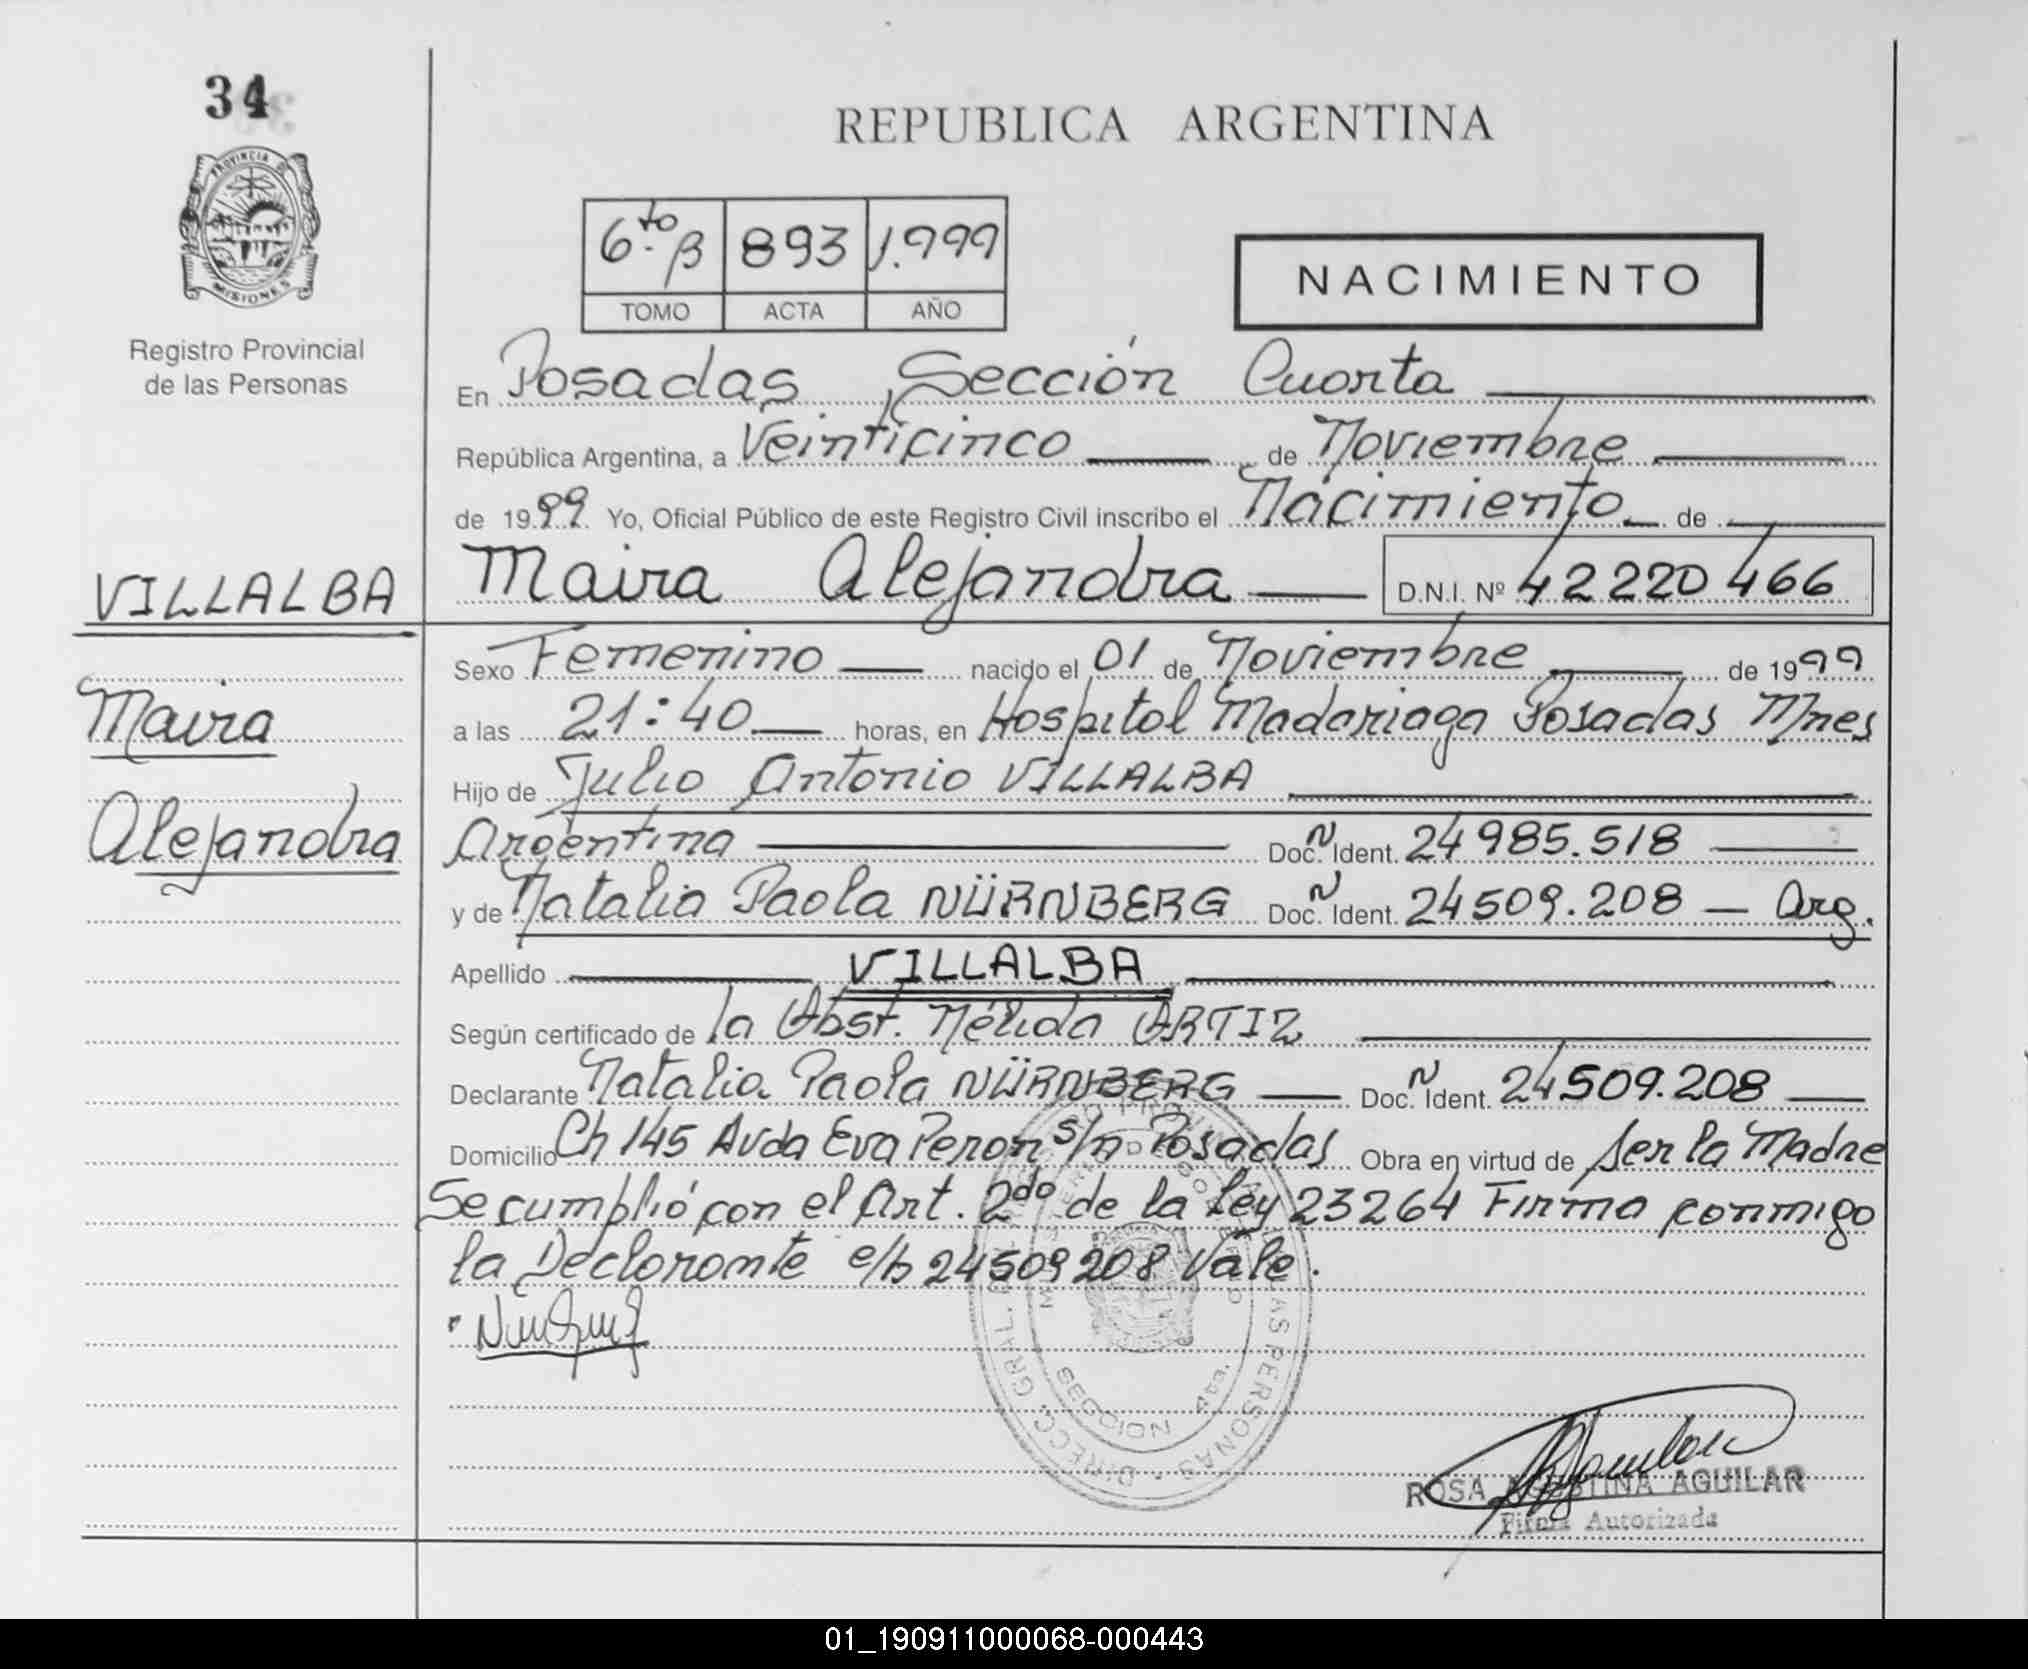 34
REPUBLICA ARGENTINA
PROVINCIA DE MISIONES
Registro Provincial
de las Personas
6.to B 893 1.999
TOMO ACTA AÑO
NACIMIENTO
En Posadas, Sección Cuarta
República Argentina, a Veinticinco de Noviembre
de 1999. Yo, Oficial Público de este Registro Civil inscribo el Nacimiento de
VILLALBA
Maira Alejandra D.N.I. Nº 42220466
Sexo Femenino nacido el 01 de Noviembre de 1999
Maira
a las 21:40 horas, en Hospital Madariaga Posadas Mnes
Hijo de Julio Antonio VILLALBA
Alejandra
Argentina Doc.N Ident. 24985.518
y de Natalia Paola NÜRNBERG Doc.N Ident. 24509.208 — Arg.
Apellido VILLALBA
Según certificado de la Obst. Nélida ORTIZ
Declarante Natalia Paola NÜRNBERG Doc.N Ident. 24509.208
Domicilio Ch 145 Avda Eva Peron s/n Posadas Obra en virtud de ser la Madre
Se cumplió con el Art. 2do de la Ley 23264 Firma conmigo
la Declarante e/b 24509208 Vale.
DIRECC. GRAL. PERSONAS
SECCION 4ta.
ROSA AGUSTINA AGUILAR
Firma Autorizada
01_190911000068-000443